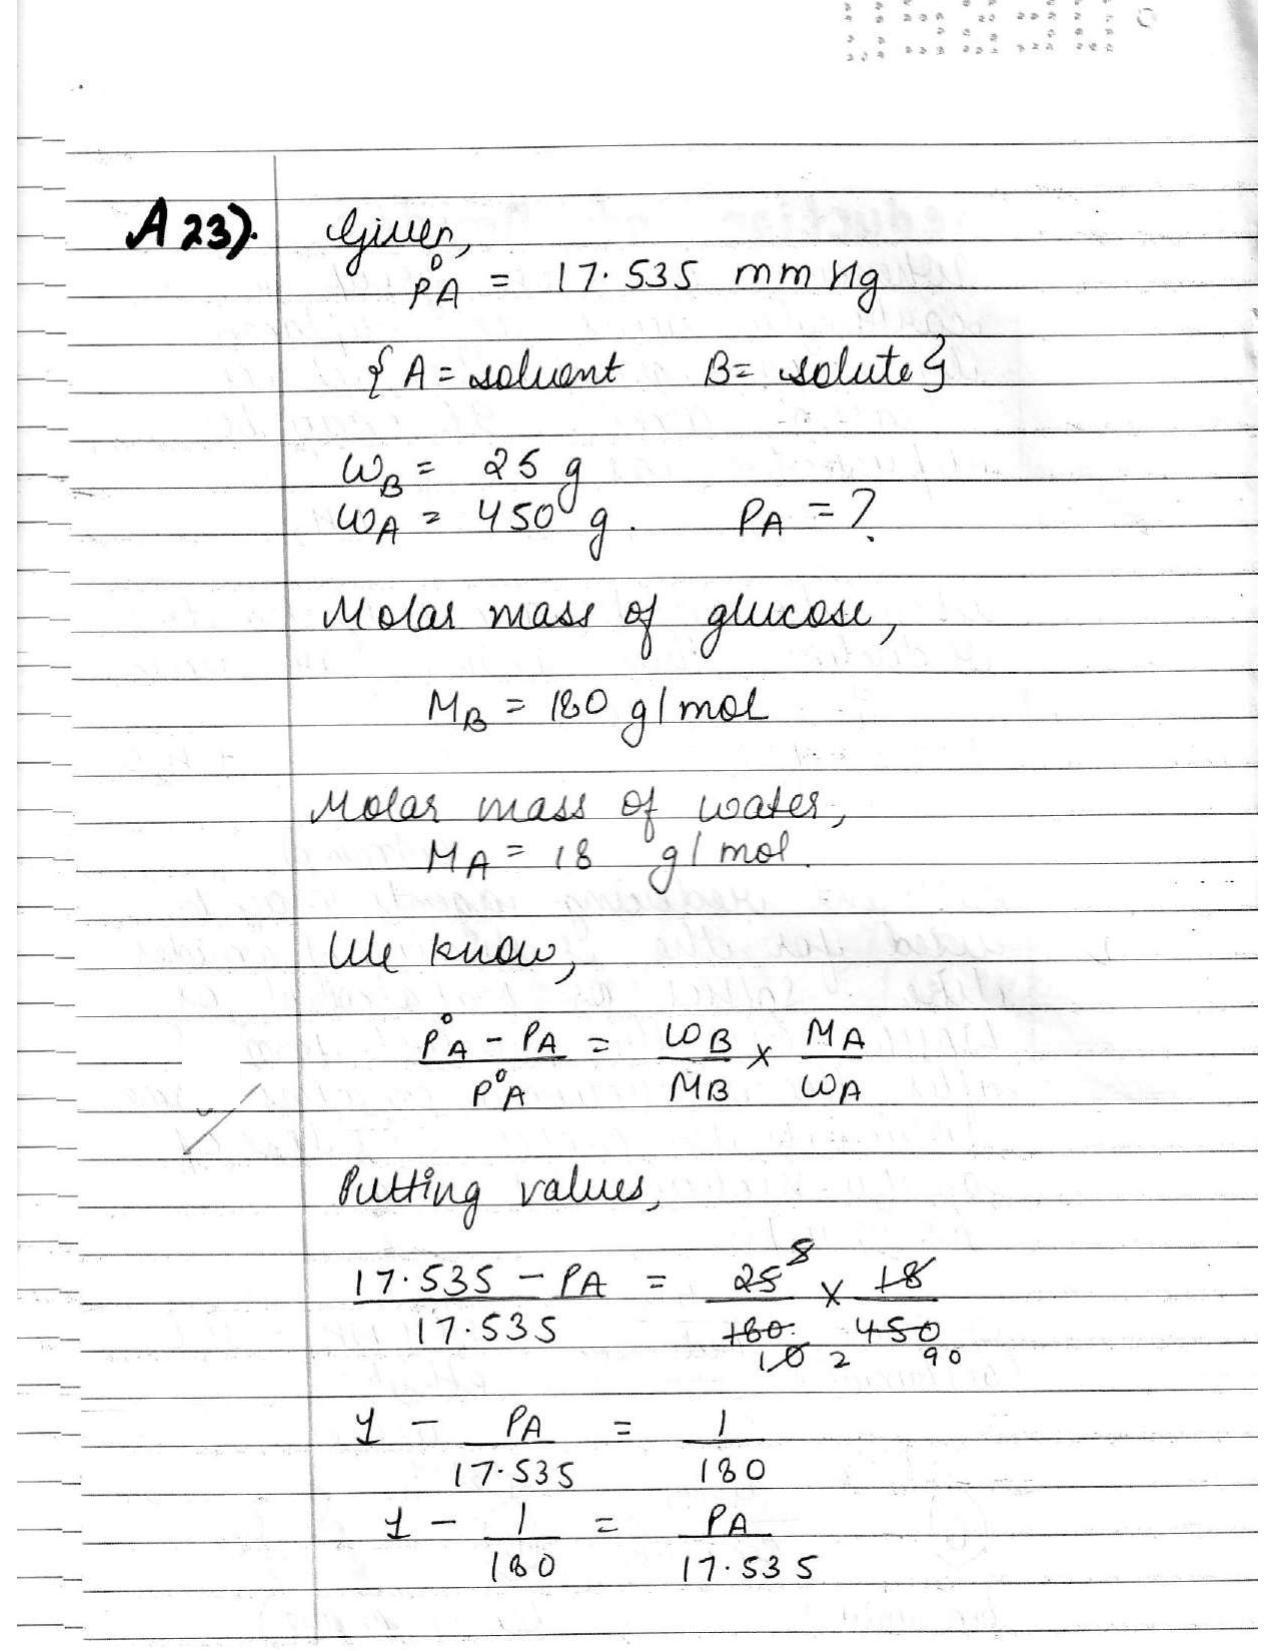 A 23).
Given,
P°A = 17.535 mm Hg
{ A = solvent B = solute }
WB = 25 g
WA = 450 g. PA = ?
Molar mass of glucose,
MB = 180 g/mol
Molar mass of water,
MA = 18 g/mol.
We know,
P°A - PA / P°A = WB / MB × MA / WA
Putting values,
17.535 - PA / 17.535 = 25 / 180 × 18 / 450
1 - PA / 17.535 = 1 / 180
1 - 1 / 180 = PA / 17.535